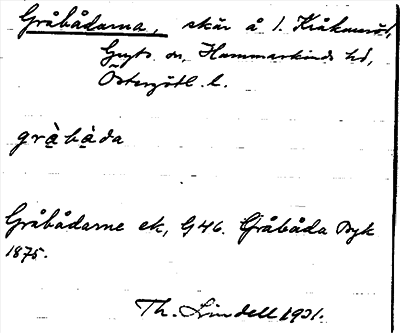 Gråbådarna, skär å l. Kråkmarö,
Gryts sn, Hammarkinds hd,
Östergötl. l.
gràbàda
Gråbådarne ek, G46. Gråbåda Byk
1875.
Th. Lindell 1931.